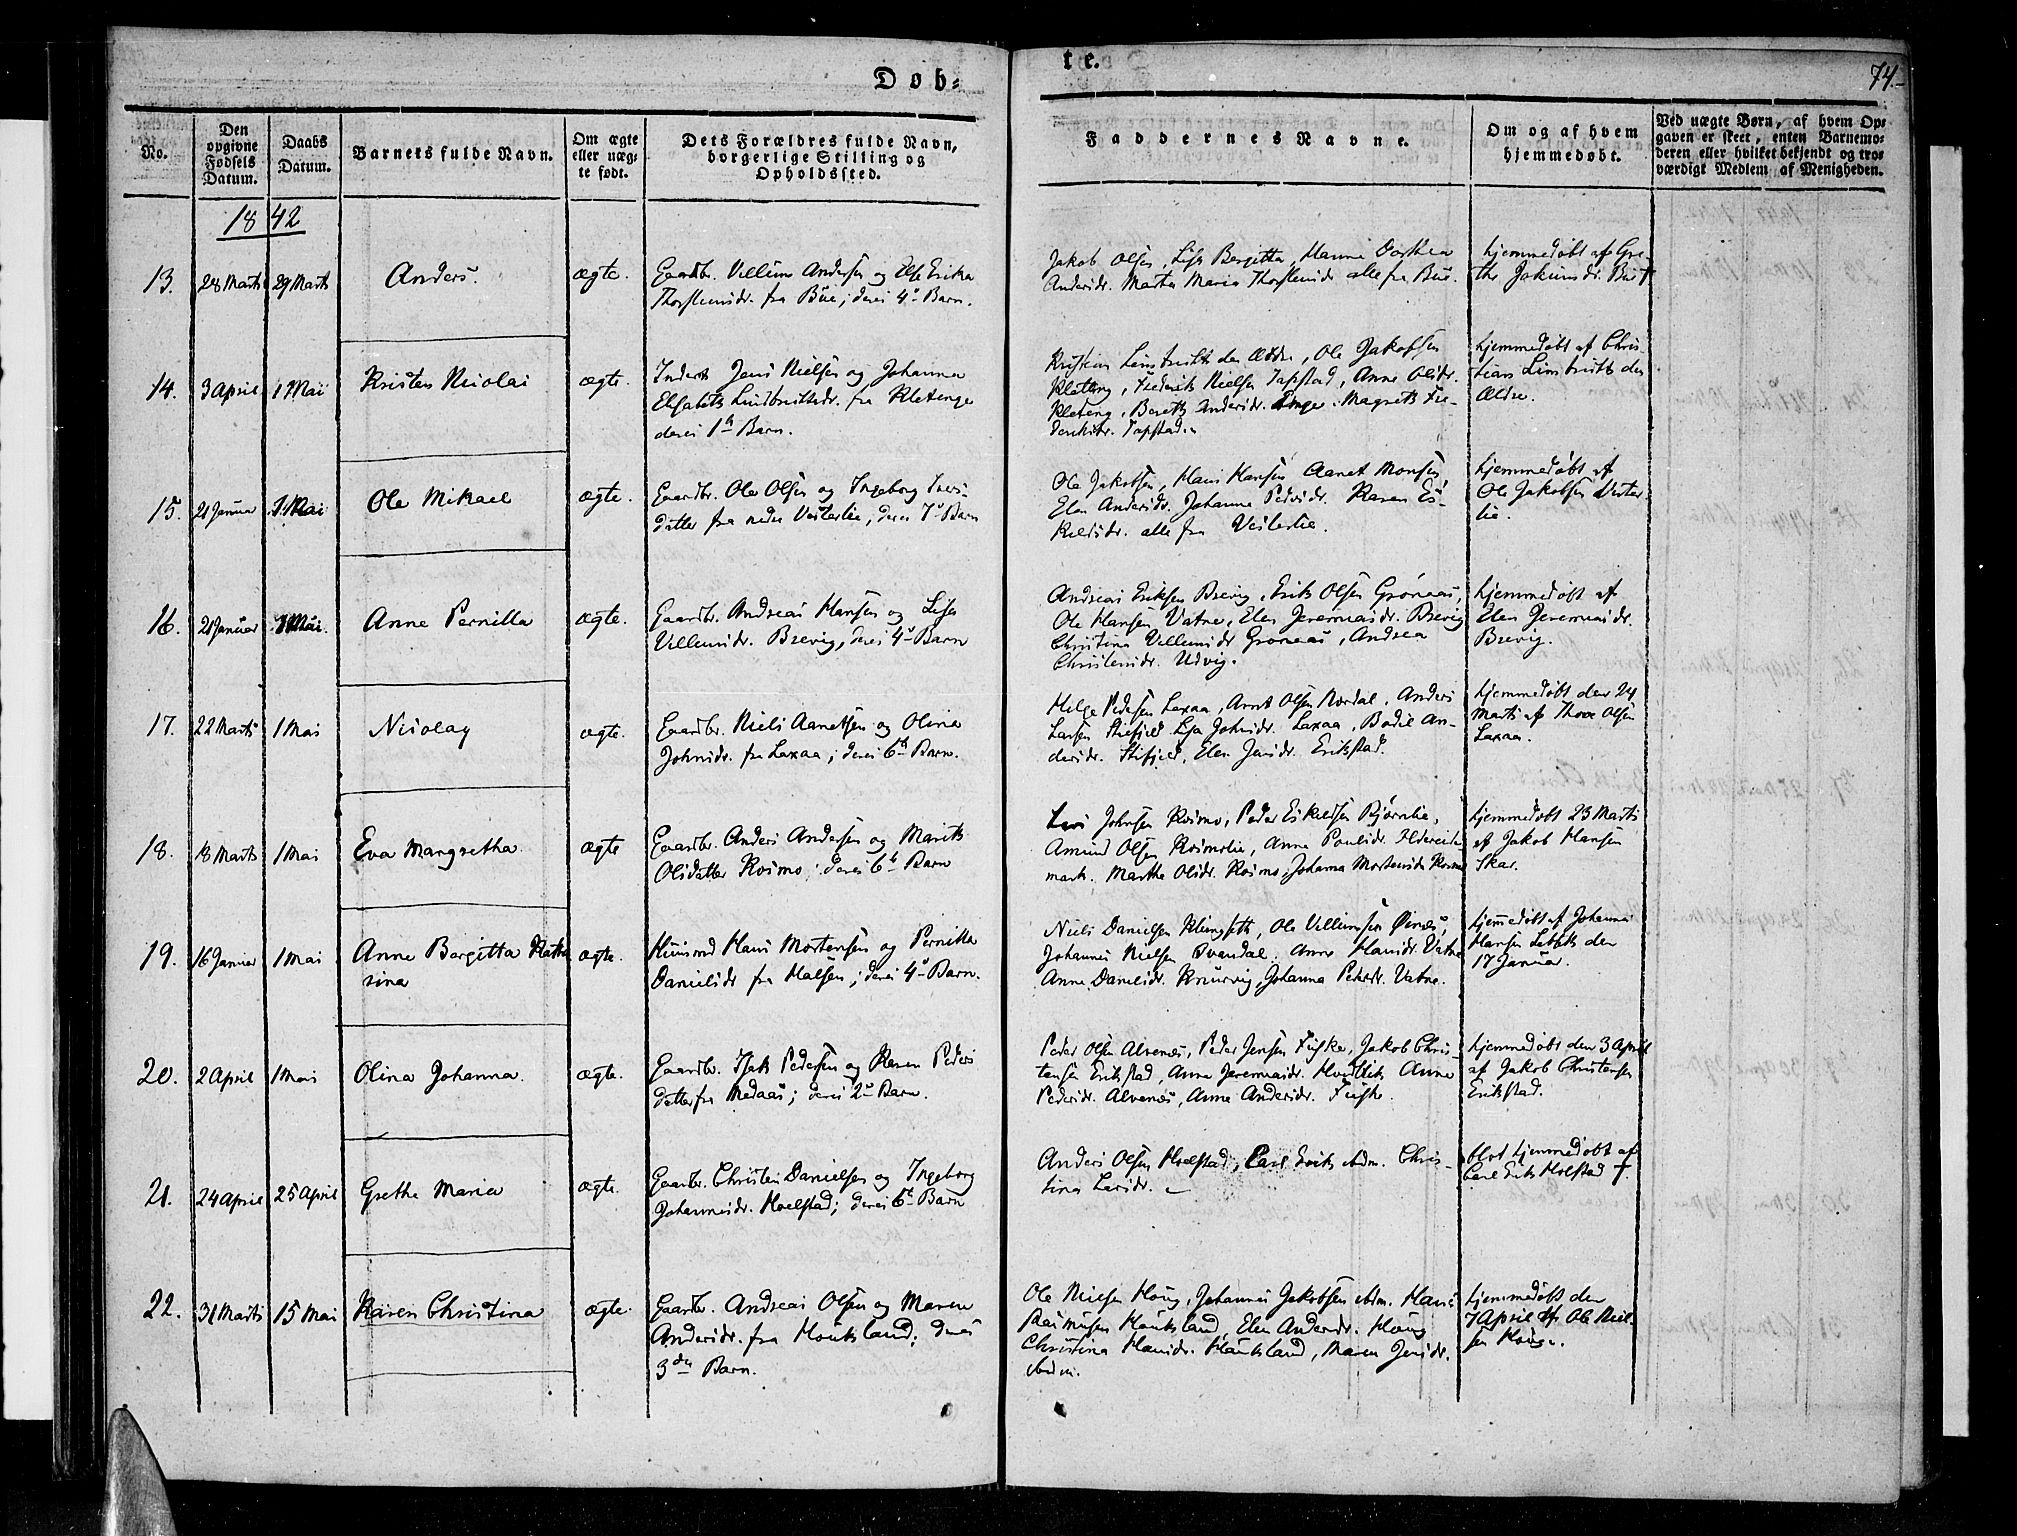 Døb=
te.
74.-
No.
Den
opgivne
Fødsels
Datum.
Daabs
Datum.
Barnets fulde Navn.
Om ægte
eller uæg-
te født.
Dets Forældres fulde Navn,
borgerlige Stilling og
Opholdssted.
Faddernes Navne.
Om og af hvem
hjemmedøbt.
Ved uægte Børn, af hvem Op-
gaven er skeet, enten Barnemo-
deren eller hvilket bekjendt og tro-
værdigt Medlem af Menigheden.
1842
13. 28 Marts 29 Marts Anders. ægte.
Gaardbr. Villum Andersen og Else Erika
fra Bue; deres 4de Barn.
Jakob Olsen, Lisa Bergitta, Hanna Dorthea
Andersdr. Martha Maria alle fra Bue.
hjemmedøbt af Gre-
the
14. 3 April 1 Mai Kristen Nicolai ægte.
Inderst Jens Nielsen og Johanna
Elisabeth fra Kletenge
deres 1te Barn.
Kristian den Ældre, Ole Jakobsen
Kleteng, Frederik Nielsen Tapstad, Anne Olsdr.
Kleteng, Bereth Andersdr. Magreth Fre-
Tapstad.
hjemmedøbt af Chris-
tian den
Ældre.
15. 21 Januar 1 Mai Ole Mikael ægte.
Gaardbr. Ole Olsen og Ingeborg Ivers-
datter fra nedre Vesterlie, deres 7de Barn
Ole Jakobsen, Hans Hansen Aanet Monsen,
Elen Andersdr. Johanna Pedersdr. Karen Es-
keldsdr. alle fra Vesterlie.
hjemmedøbt af
Ole Jakobsen Vester-
lie.
16. 21 Januar 1 Mai. Anne Pernilla ægte.
Gaardbr. Andreas Hansen og Lisa
Villumsdr. Brevig, deres 4de Barn
Andreas Eriksen Brevig, Erik Olsen Grønaas,
Ole Hansen Vatne, Elen Jeremiasdr. Brevig
Christina Villumsdr Grønaas, Andrea
Christensdr. Udvig.
hjemmedøbt af
Elen Jeremiasdr.
Brevig.
17. 22 Marts 1 Mai Nicolay ægte.
Gaardbr. Niels Aanetsen og Olina
Johnsdr. fra Laxaa; deres 6te Barn.
Helge Pedersen Laxaa, Arnt Olsen Nordal, Anders
Larsen Lisa Johnsdr. Laxaa, Bodil An-
dersdr. Elen Jensdr. Erikstad.
hjemmedøbt den 24
Marts af Thore Olsen
Laxaa.
18. 18 Marts 1 Mai Eva Margretha. ægte
Gaardbr. Anders Andersen og Marith
Olsdatter Kosmo; deres 6te Barn
Johnsen Kosmo, Peder Eskeldsen Bjørnlie,
Amund Olsen Kosmolie, Anne Paulsdr.
mark. Martha Olsdr. Kosmo, Johanna Mortensdr. Kosmo
hjemmedøbt 23 Marts
af Jakob Hansen
Skar.
19. 16 Januar 1 Mai Anne Bergitta Katha
rina ægte.
Huusmd Hans Mortensen og Pernilla
Danielsdr fra Halsen; deres 4de Barn.
Niels Danielsen Klungseth, Ole Villumsen Øines,
Johannes Nielsen Anne Hansdr. Vatne
Anne Danielsdr. Johanna Pedersdr. Vatne.
hjemmedøbt af Johannes
Hansen den
17 Januar.
20. 2 April 1 Mai Olina Johanna. ægte.
Gaardbr. Isak Pedersen og Karen Peders
datter fra Medaas; deres 2de Barn.
Peder Olsen Alvenes, Peder Jensen Fuske, Jakob Chris-
tensen Erikstad, Anne Jeremiasdr. Anne
Pedersdr. Alvenes, Anne Andersdr. Fuske.
hjemmedøbt den 3 April
af Jakob Christensen
Erikstad.
21. 24 April 25 April Grethe Maria ægte.
Gaardbr. Christen Danielsen og Ingeborg
Johannesdr. Hoelstad; deres 6te Barn
Anders Olsen Hoelstad, Carl Erik ibdm. Chris-
tina Larsdr.
blot hjemmedøbt af
Carl Erik Hoelstad †.
22. 31 Marts 15 Mai Karen Christina ægte.
Gaardbr. Andreas Olsen og Maren
Andersdr. fra Houksland; deres
3die Barn.
Ole Nielsen Houg, Johannes Jakobsen ibdm. Hans
Rasmusen Houksland, Elen Andersdr. Houg
Christina Hansdr. Houksland, Maren Jensdr.
ibdm.
hjemmedøbt den
7 April af Ole Niel-
sen Houg.